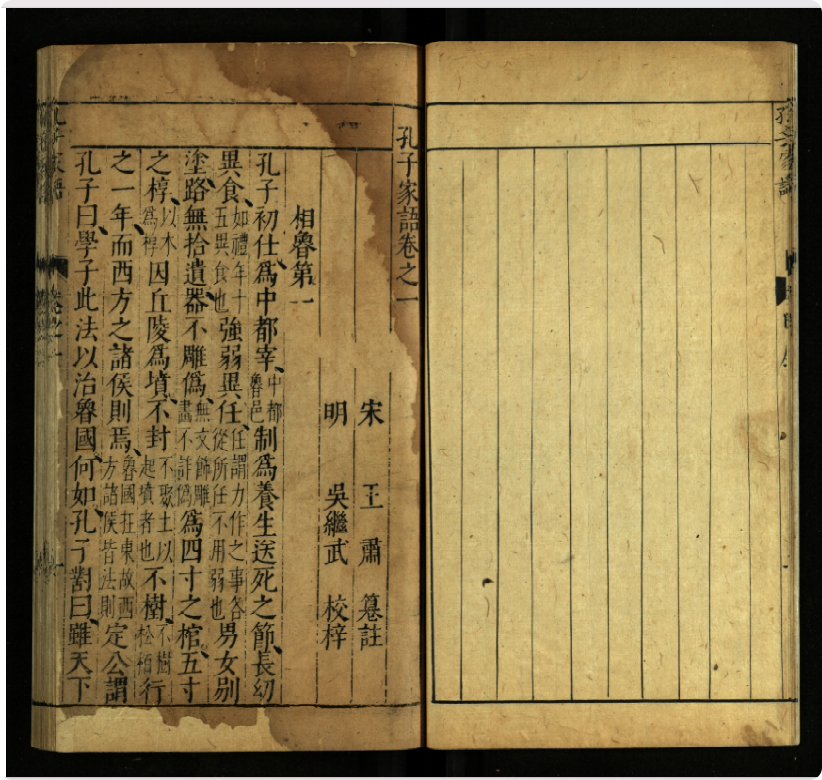 孔子家語
孔子家語卷之一
宋 王 肅 纂註
明 吳繼武 校梓
相魯第一
孔子初仕爲中都宰、中都魯邑制爲養生送死之節、長幼
異食、如禮年十五異食也強弱異任、任謂力作之事各從所任不用弱也男女別
塗路無拾遺器不雕僞、無文飾雕畫不詐僞爲四寸之棺、五寸
之椁、以木爲椁因丘陵爲墳、不封不聚土以起墳者也不樹、不樹松栢行
之一年、而西方之諸侯則焉、魯國在東故西方諸侯皆法則定公謂
孔子曰、學子此法以治魯國何如、孔子對曰、雖天下
孔子家語
卷之一